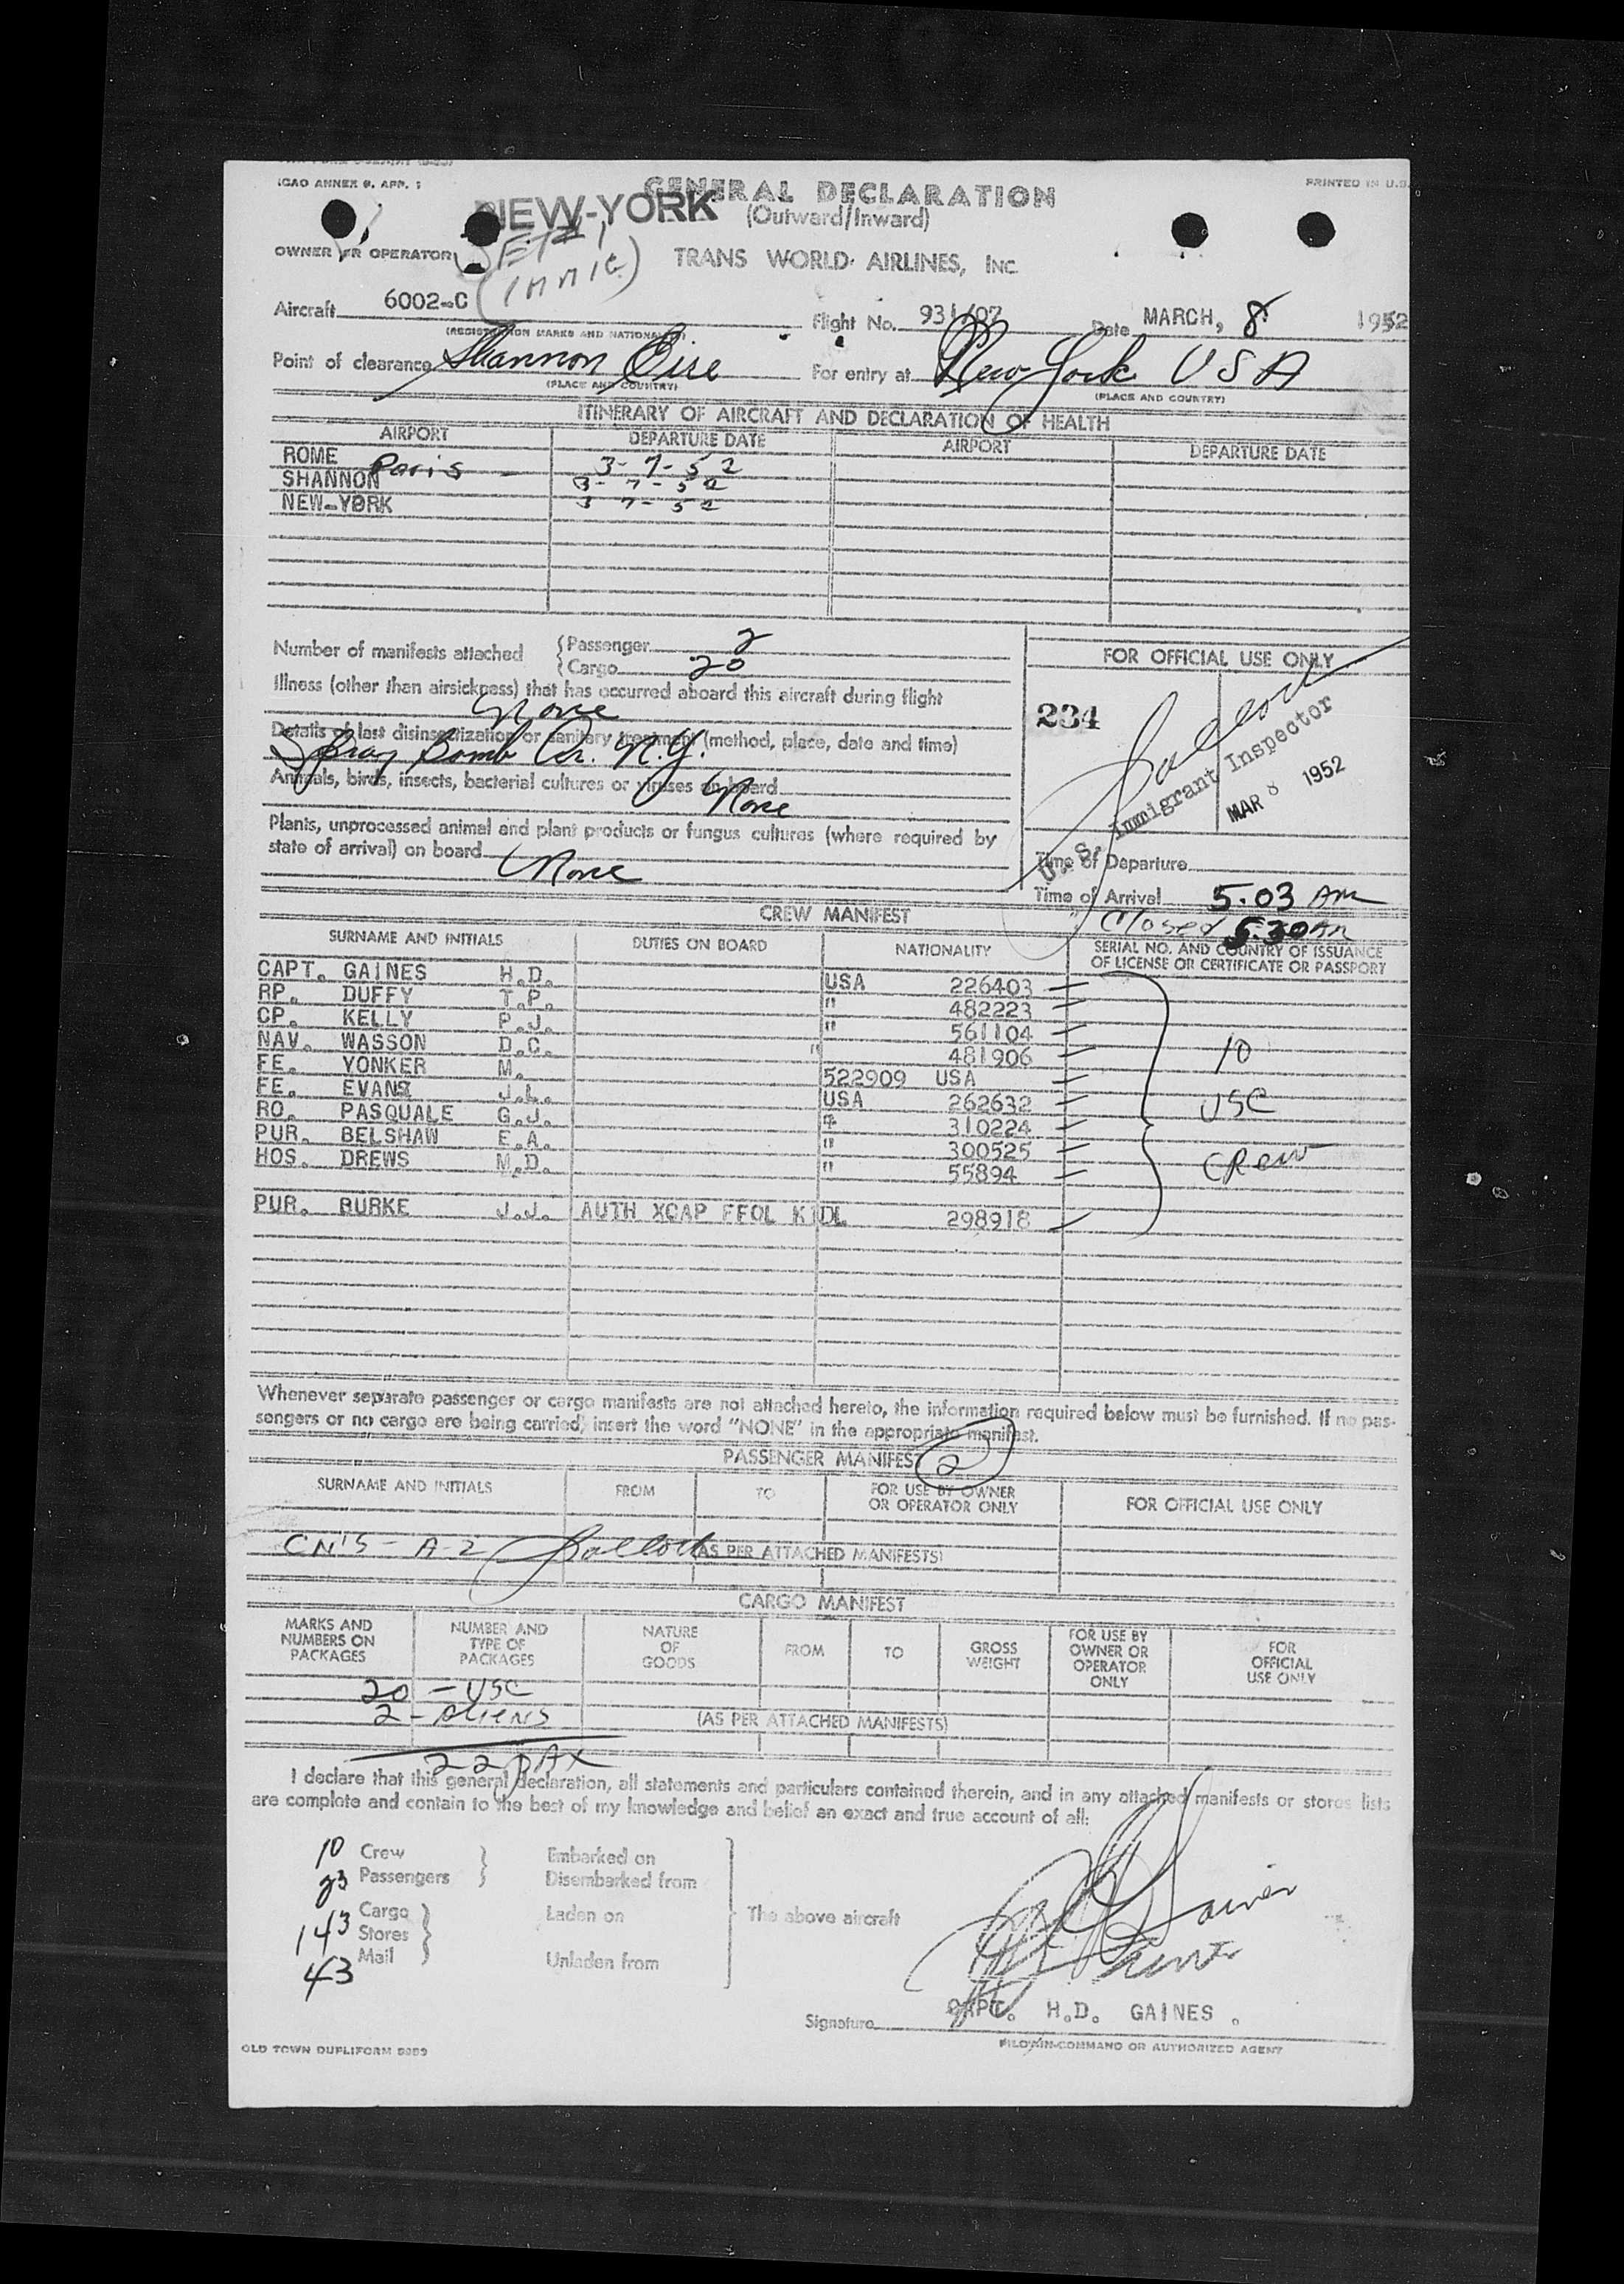 ICAO ANNEX 9, APP. 1
PRINTED IN U.S.
GENERAL DECLARATION
NEW-YORK
(Outward/Inward)
OWNER OR OPERATOR
TRANS WORLD AIRLINES, INC
Aircraft 6002-C Flight No. 931/07 Date MARCH, 8 1952
(REGISTRATION MARKS AND NATIONALITY)
Point of clearance Shannon Eire For entry at New York USA
(PLACE AND COUNTRY) (PLACE AND COUNTRY)
ITINERARY OF AIRCRAFT AND DECLARATION OF HEALTH
AIRPORT DEPARTURE DATE AIRPORT DEPARTURE DATE
ROME
Paris - 3-7-52
SHANNON 3-7-52
NEW-YORK 3 7-52
Number of manifests attached { Passenger 2
{ Cargo 20
FOR OFFICIAL USE ONLY
Illness (other than airsickness) that has occurred aboard this aircraft during flight
None
234
Details of last disinsectization or sanitary treatment (method, place, date and time)
Spray Bomb N.Y.
Animals, birds, insects, bacterial cultures or viruses on board None
U.S. Immigrant Inspector
MAR 8 1952
Plants, unprocessed animal and plant products or fungus cultures (where required by
state of arrival) on board None
Time of Departure
Time of Arrival 5.03 AM
" Closed 5.30 AM
CREW MANIFEST
SURNAME AND INITIALS DUTIES ON BOARD NATIONALITY SERIAL NO. AND COUNTRY OF ISSUANCE
OF LICENSE OR CERTIFICATE OR PASSPORT
CAPT. GAINES H.D. USA 226403
RP. DUFFY T.P. " 482223
CP. KELLY P.J. " 561104
NAV. WASSON D.C. " 481906
FE. YONKER M. 522909 USA
FE. EVANS J.L. USA 262632
RO. PASQUALE G.J. " 310224
PUR. BELSHAW E.A. " 300525
HOS. DREWS M.D. " 55894
10
USC
Crew
PUR. BURKE J.J. AUTH XCAP FFOL KIDL 298918
Whenever separate passenger or cargo manifests are not attached hereto, the information required below must be furnished. If no pas-
sengers or no cargo are being carried, insert the word "NONE" in the appropriate manifest.
PASSENGER MANIFEST 2
SURNAME AND INITIALS FROM TO FOR USE BY OWNER
OR OPERATOR ONLY FOR OFFICIAL USE ONLY
CN'S - A-2 (AS PER ATTACHED MANIFESTS)
CARGO MANIFEST
MARKS AND
NUMBERS ON
PACKAGES
NUMBER AND
TYPE OF
PACKAGES
NATURE
OF
GOODS
FROM
TO
GROSS
WEIGHT
FOR USE BY
OWNER OR
OPERATOR
ONLY
FOR
OFFICIAL
USE ONLY
20 - USC
2 - Aliens (AS PER ATTACHED MANIFESTS)
22 PAX
I declare that this general declaration, all statements and particulars contained therein, and in any attached manifests or stores lists
are complete and contain to the best of my knowledge and belief an exact and true account of all:
10 Crew } Embarked on
23 Passengers } Disembarked from
Cargo } Laden on The above aircraft
143 Stores
43 Mail } Unladen from
Signature CAPT. H.D. GAINES .
PILOT-IN-COMMAND OR AUTHORIZED AGENT
OLD TOWN DUPLIFORM